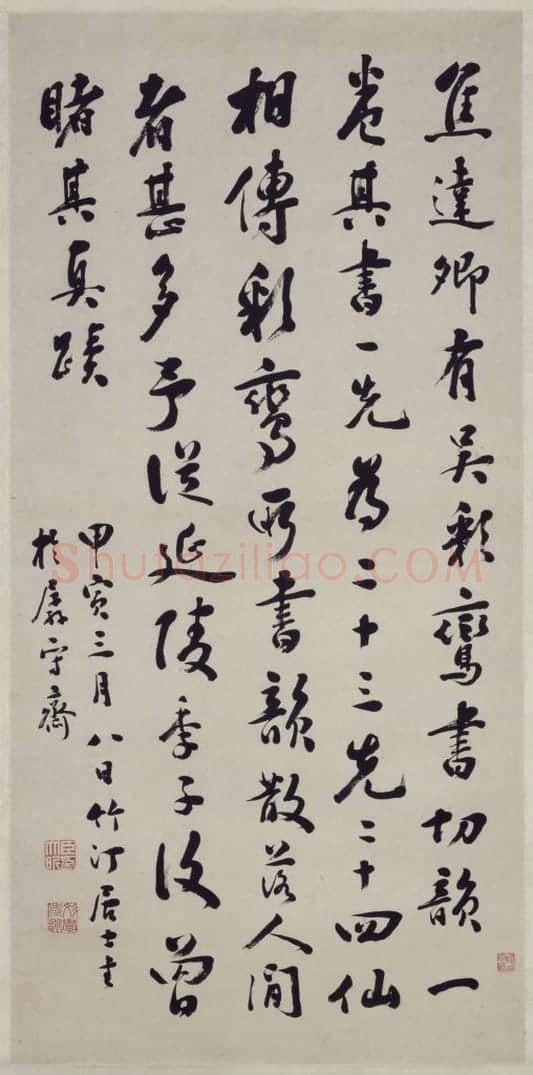 焦達卿有吳彩鸞書切韻一
卷其書一先為二十三先二十四仙
相傳彩鸞所書韻散落人間
者甚多予從延陵季子後曾
睹其真蹟
甲寅三月八日竹汀居士書
於孱守齋
Shufaziliao.COM